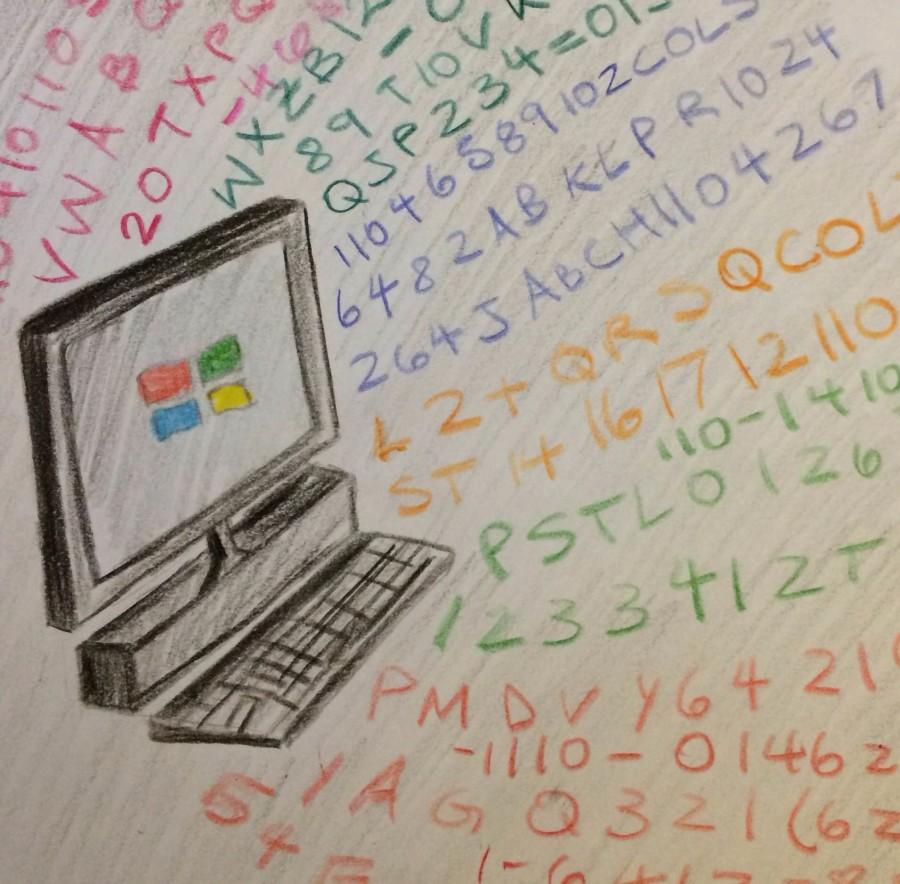 VWABQ
20TXPQ
-46
WXZB12
89T10VK
-0
QJP234=01-
1104658910ZCOLS
6482ABKLPR1024
264JABCH1104267
LZ+QRJQCOL
ST1+161712110
110-1410
PSTL0126
1233412T
PMDVY6421
-1110-0146z
5YAGQ321(6z
+E